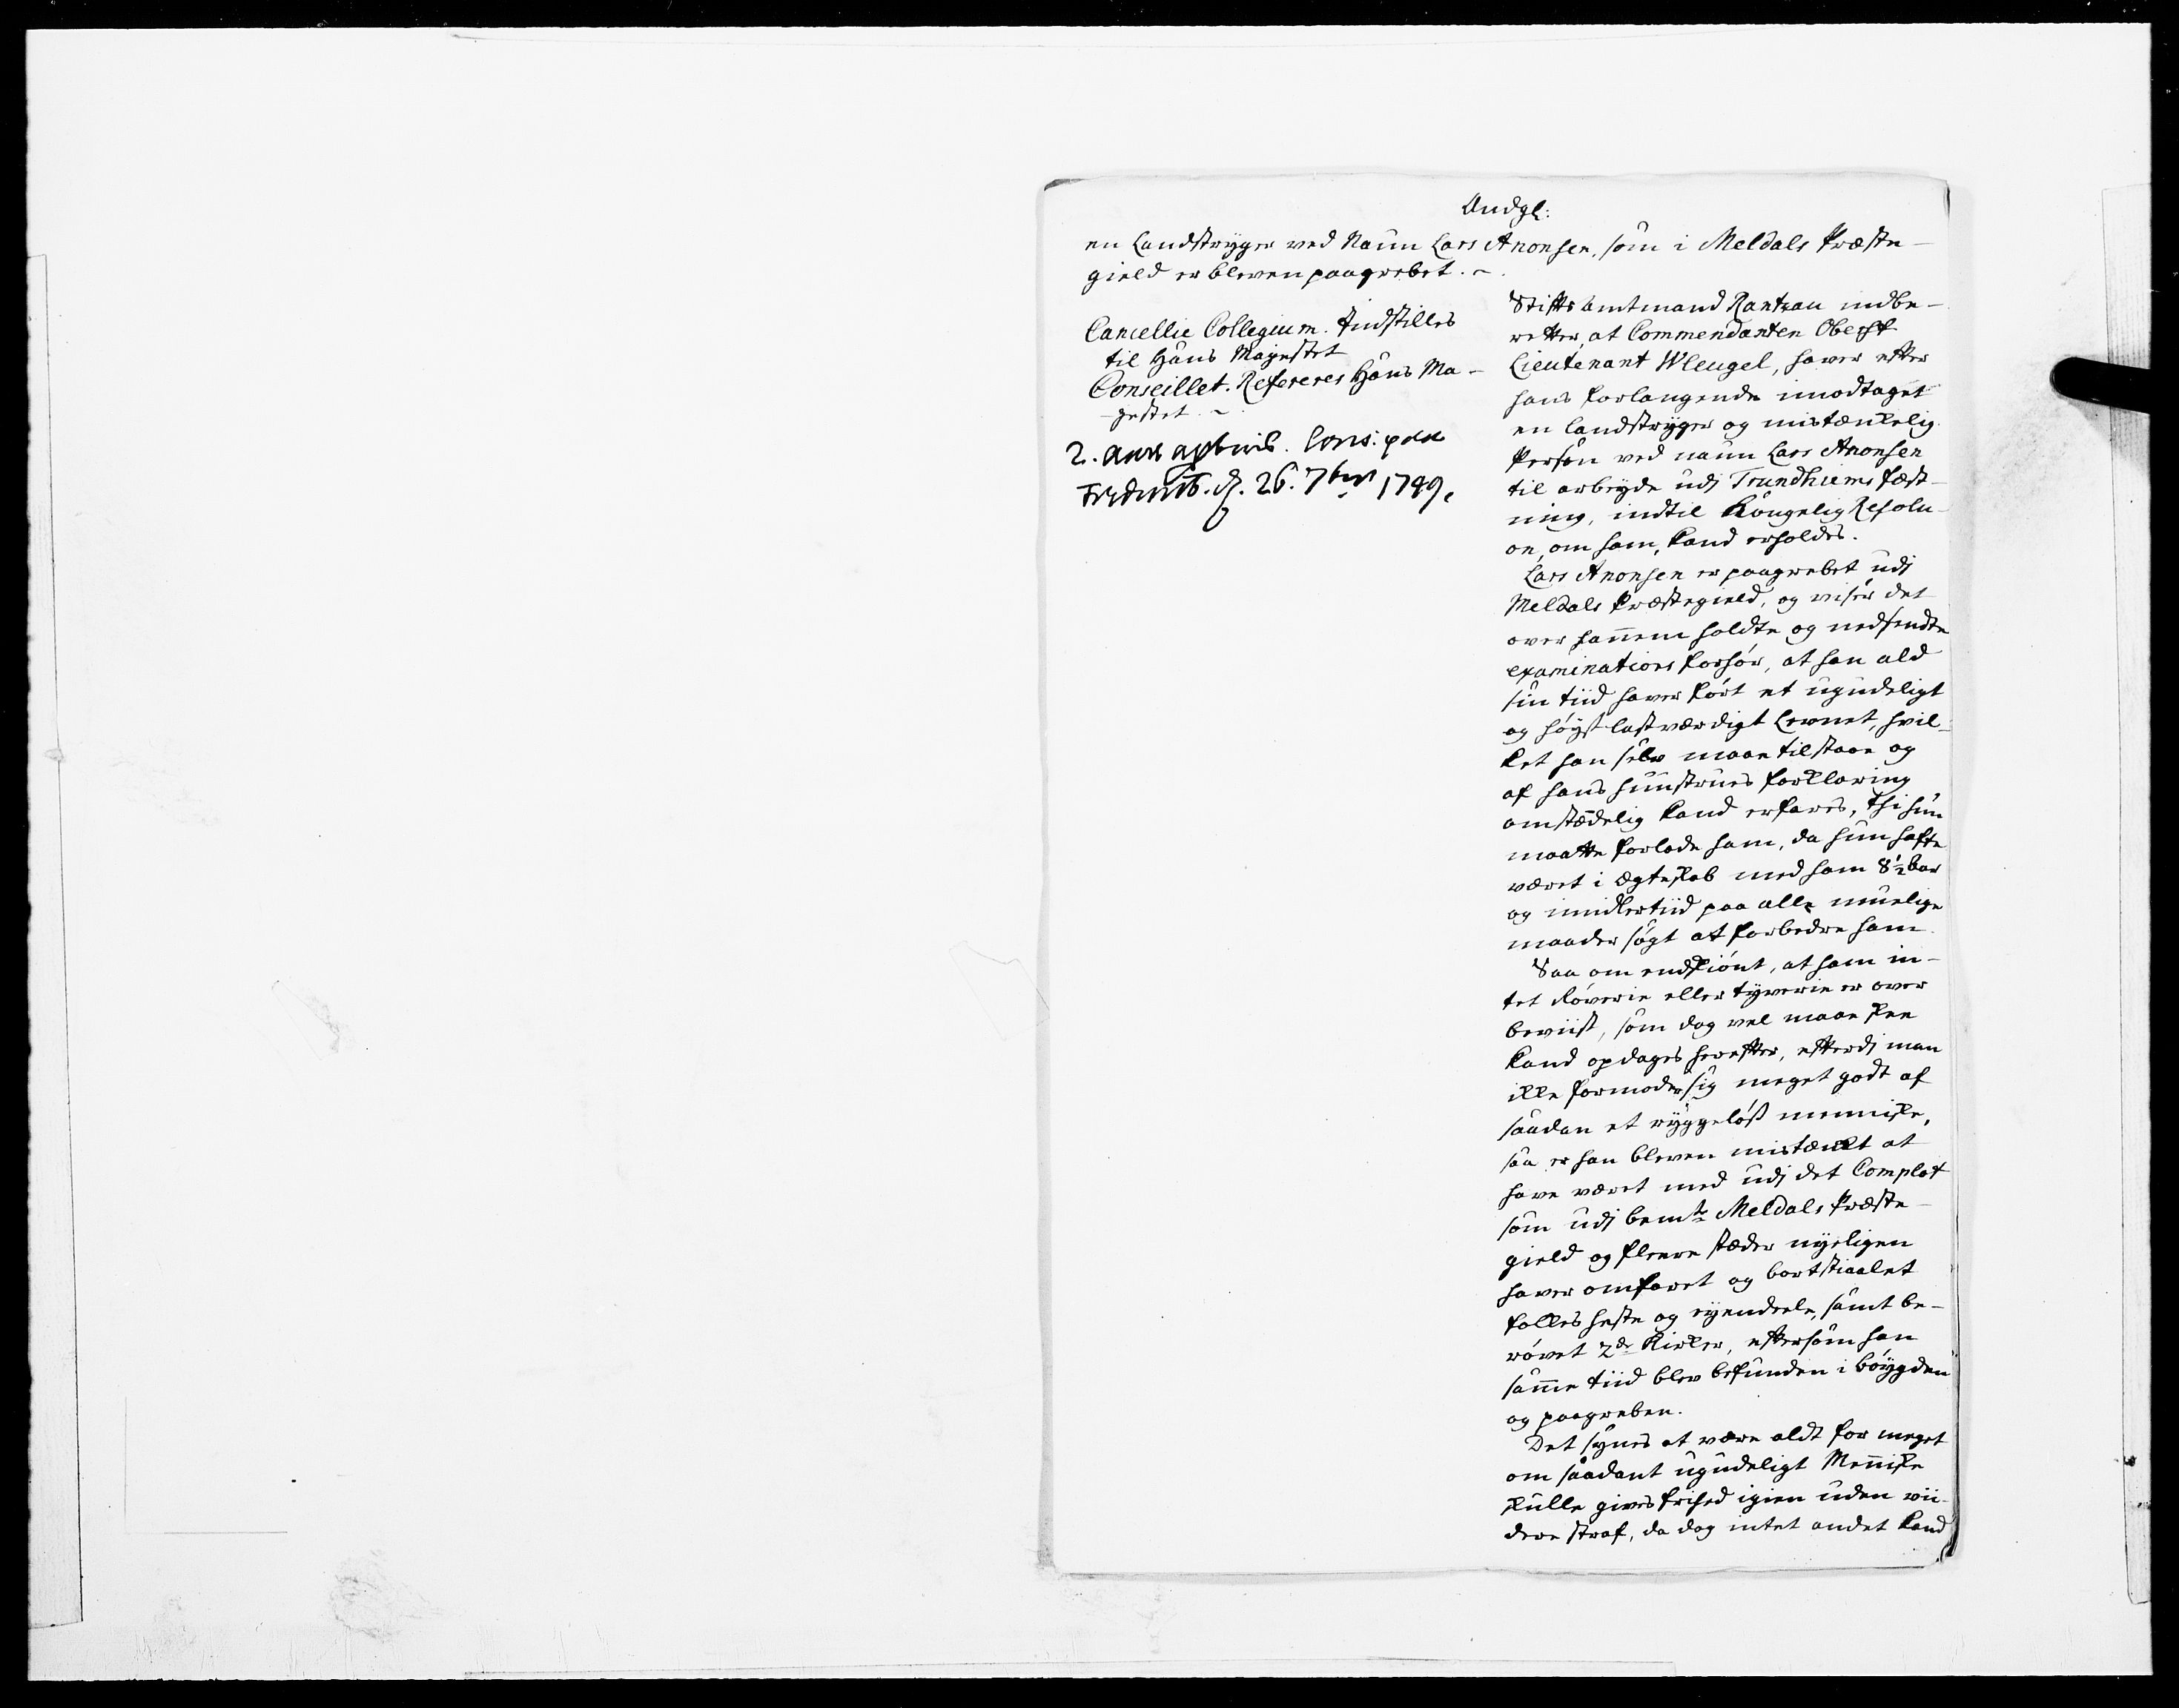 Andg:
en Landstryger ved Naun Lars Anonsen, som i Meldals Præste-
gield er bleven paagrebet. ~
Cancellie Collegium. Indstilles
til Hans Majestet
Conseillet. Refereres Hans Ma-
jestet. ~
2.
26. 7br 1749.
Stiftsamtmand Rantzau indbe-
retter, at Commendanten Oberst
Lieutenant Wleugel, haver efter
hans forlangende imodtaget
en landstryger og mistænkelig
Person ved naun Lars Anonsen
til arbeyde udj Trundhiems fæst-
ning, indtil Kongelig Resolu-
on, om ham, kand erholdes.
Lars Anonsen er paagrebet udj
Meldals Præstegield, og viser det
over hannem holdte og nedsendte
examinations forhør, at han ald
sin tiid haver ført et ugudeligt
og høyst lastværdigt Levnet, hvil-
ket han selv maae tilstaae og
af hans hustrues forklaring
omstædelig kand erfares, thi hun
maatte forlade ham, da hun hafte
været i ægteskab med ham 8½ aar
og imidlertiid paa alle muelige
maader søgt at forbedre ham.
Saa om endskiønt, at ham in-
tet røverie eller tyverie er over
beviist, som dog vel maaeskee
kand opdages herefter, efterdj man
ikke formoder sig meget godt af
saadan et ryggeløst menniske,
saa er han bleven mistænkt at
have været med udj det Complot
som udj bemte Meldals Præste-
gield og fleere stæder nyeligen
haver omfaret og bortstiaalet
folkes heste og eyendeele, samt be-
røvet 2de Kirker, eftersom han
samme tiid blev befunden i bøygden
og paagreben.
Det synes at være aldt for meget
om saadant ugudeligt Menniske
skulle gives frihed igien uden vii-
dere straf, da dog intet andet kand